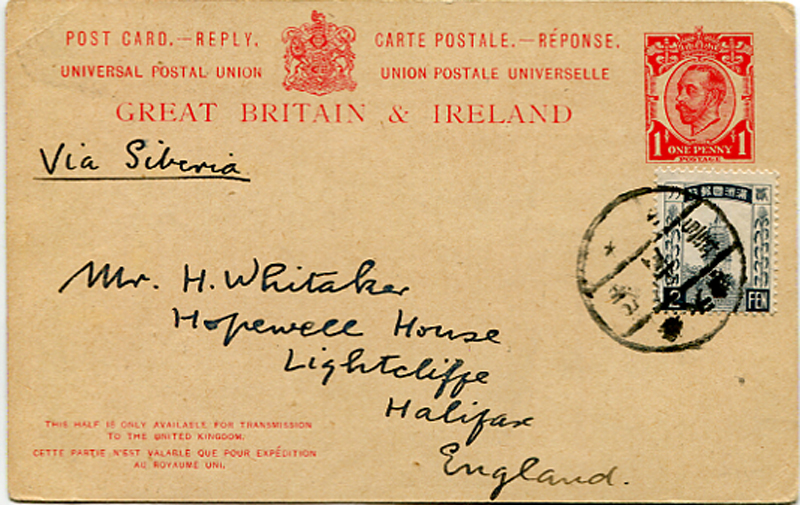 POST CARD.—REPLY.
CARTE POSTALE.—RÉPONSE.
UNIVERSAL POSTAL UNION
UNION POSTALE UNIVERSELLE
GREAT BRITAIN & IRELAND
1 ONE PENNY 1
POSTAGE
Via Siberia
2 FEN
Mr. H. Whitaker
Hopewell House
Lightcliffe
Halifax
England.
THIS HALF IS ONLY AVAILABLE FOR TRANSMISSION
TO THE UNITED KINGDOM.
CETTE PARTIE N'EST VALABLE QUE POUR EXPÉDITION
AU ROYAUME UNI.